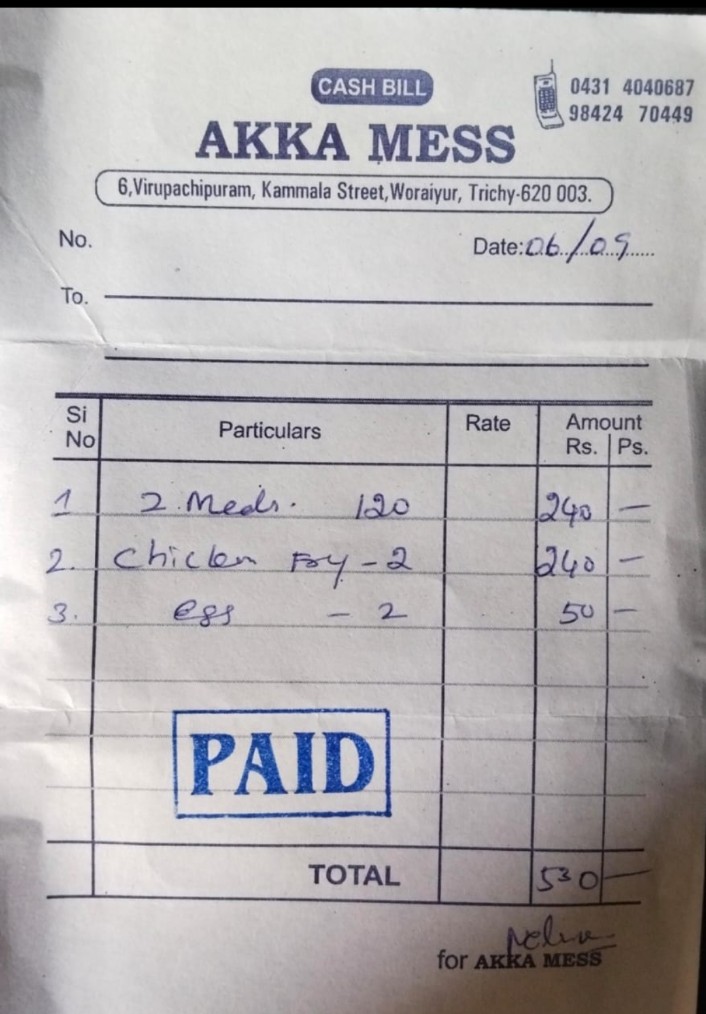 CASH BILL
0431 4040687
98424 70449
AKKA MESS
6,Virupachipuram, Kammala Street,Woraiyur, Trichy-620 003.
No. Date:06/09
To.
Si No Particulars Rate Amount Rs. Ps.
1 2 Meals. 120 240 —
2. Chicken Fry - 2 240 —
3. egg - 2 50 —
PAID
TOTAL 530 —
for AKKA MESS